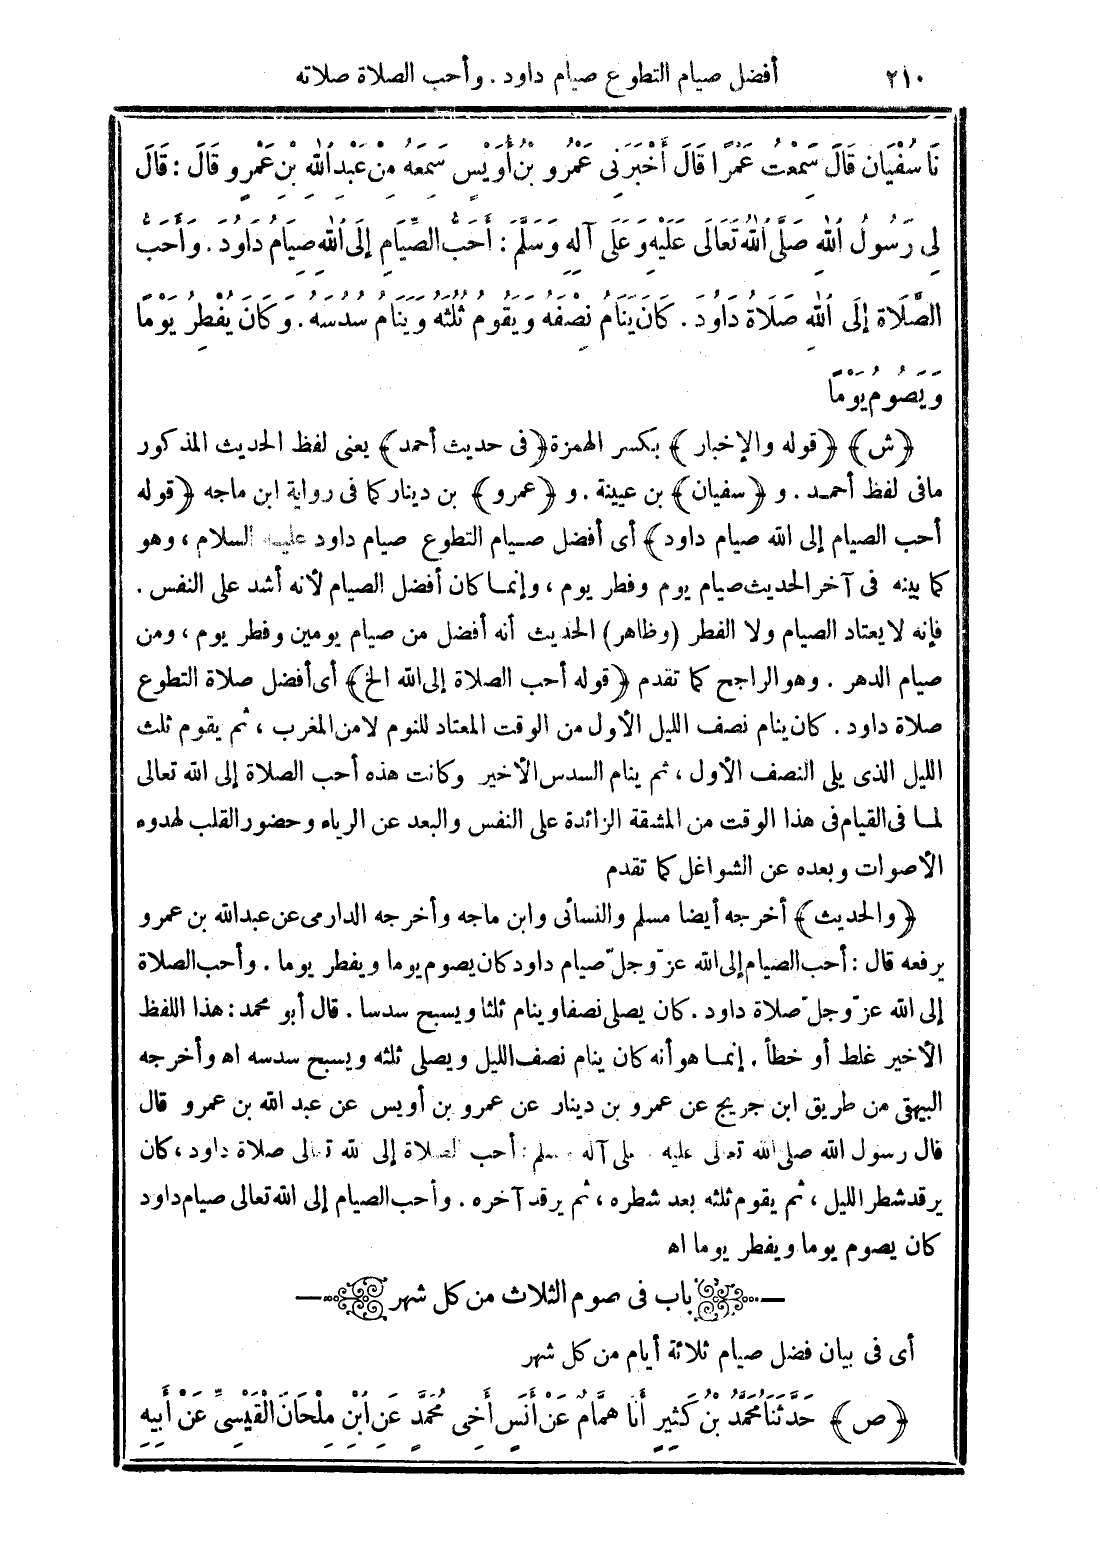 ٢١٠
أفضل صيام التطوع صيام داود . وأحب الصلاة صلاته
نَا سُفْيَان قَالَ سَمِعْتُ عَمْرًا قَالَ أَخْبَرَنِى عَمْرُو بْنُ أَوَيْسٍ سَمِعَهُ مِنْ عَبْدِ اللهِ بْنِ عَمْرٍو قَالَ : قَالَ
لِى رَسُولُ اللهِ صَلَّى اللهُ تَعَالَى عَلَيْهِ وَعَلَى آلِهِ وَسَلَّمَ : أَحَبُّ الصِّيَامِ إِلَى اللهِ صِيَامُ دَاوُدَ . وَأَحَبُّ
الصَّلَاةِ إِلَى اللهِ صَلَاةُ دَاوُدَ . كَانَ يَنَامُ نِصْفَهُ وَيَقُومُ ثُلُثَهُ وَيَنَامُ سُدُسَهُ . وَكَانَ يُفْطِرُ يَوْمًا
وَيَصُومُ يَوْمًا
﴿ش﴾ ﴿قوله والإخبار﴾ بكسر الهمزة ﴿فى حديث أحمد﴾ يعنى لفظ الحديث المذكور
مافى لفظ أحمد . و ﴿سفيان﴾ بن عيينة . و ﴿عمرو﴾ بن دينار كما فى رواية ابن ماجه ﴿قوله
أحب الصيام إلى الله صيام داود﴾ أى أفضل صيام التطوع صيام داود عليه السلام ، وهو
كما بينه فى آخر الحديث صيام يوم وفطر يوم ، وإنما كان أفضل الصيام لأنه أشد على النفس .
فإنه لا يعتاد الصيام ولا الفطر (وظاهر) الحديث أنه أفضل من صيام يومين وفطر يوم ، ومن
صيام الدهر . وهو الراجح كما تقدم ﴿قوله أحب الصلاة إلى الله الخ﴾ أى أفضل صلاة التطوع
صلاة داود . كان ينام نصف الليل الأول من الوقت المعتاد للنوم لا من المغرب ، ثم يقوم ثلث
الليل الذى يلى النصف الأول ، ثم ينام السدس الأخير وكانت هذه أحب الصلاة إلى الله تعالى
لما فى القيام فى هذا الوقت من المشقة الزائدة على النفس والبعد عن الرياء وحضور القلب لهدوء
الأصوات وبعده عن الشواغل كما تقدم
﴿والحديث﴾ أخرجه أيضا مسلم والنسائى وابن ماجه وأخرجه الدارمى عن عبد الله بن عمرو
يرفعه قال : أحب الصيام إلى الله عزّ وجلّ صيام داود كان يصوم يوما ويفطر يوما . وأحب الصلاة
إلى الله عزّ وجلّ صلاة داود . كان يصلى نصفا وينام ثلثا ويسبح سدسا . قال أبو محمد : هذا اللفظ
الأخير غلط أو خطأ . إنما هو أنه كان ينام نصف الليل ويصلى ثلثه ويسبح سدسه اه وأخرجه
البيهقى من طريق ابن جريج عن عمرو بن دينار عن عمرو بن أويس عن عبد الله بن عمرو قال
قال رسول الله صلى الله تعالى عليه وعلى آله وسلم : أحب الصلاة إلى الله تعالى صلاة داود ، كان
يرقد شطر الليل ، ثم يقوم ثلثه بعد شطره ، ثم يرقد آخره . وأحب الصيام إلى الله تعالى صيام داود
كان يصوم يوما ويفطر يوما اه
باب فى صوم الثلاث من كل شهر
أى فى بيان فضل صيام ثلاثة أيام من كل شهر
﴿ص﴾ حَدَّثَنَا مُحَمَّدُ بْنُ كَثِيرٍ أَنَا هَمَّامٌ عَنْ أَنَسٍ أَخِى مُحَمَّدٍ عَنِ ابْنِ مِلْحَانَ الْقَيْسِىِّ عَنْ أَبِيهِ